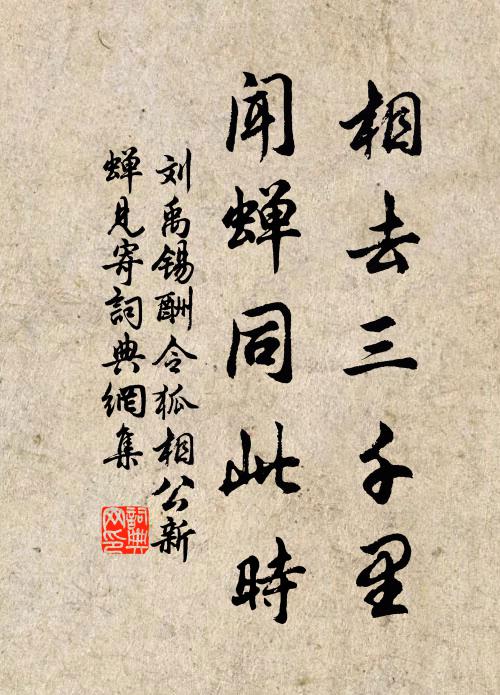 相去三千里
闻蝉同此時
刘禹锡酬令狐相公新
蝉見寄詞典網集